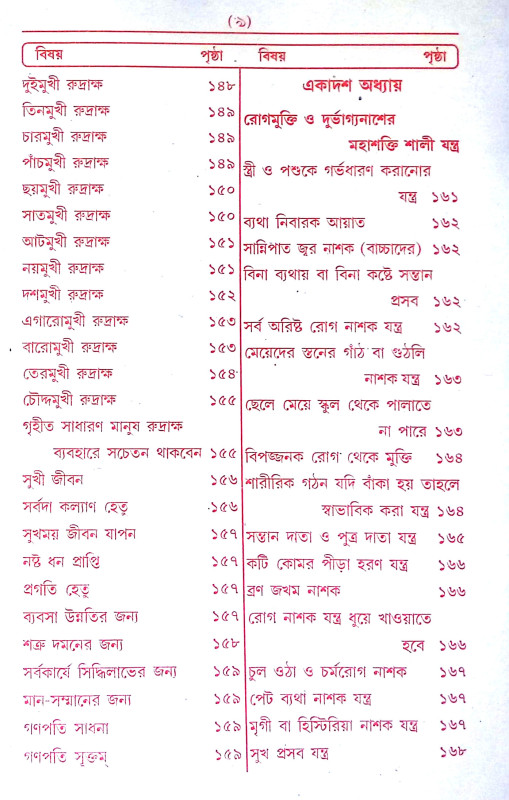 (৯)
বিষয় পৃষ্ঠা
দুইমুখী রুদ্রাক্ষ ১৪৮
তিনমুখী রুদ্রাক্ষ ১৪৯
চারমুখী রুদ্রাক্ষ ১৪৯
পাঁচমুখী রুদ্রাক্ষ ১৪৯
ছয়মুখী রুদ্রাক্ষ ১৫০
সাতমুখী রুদ্রাক্ষ ১৫০
আটমুখী রুদ্রাক্ষ ১৫১
নয়মুখী রুদ্রাক্ষ ১৫১
দশমুখী রুদ্রাক্ষ ১৫২
এগারোমুখী রুদ্রাক্ষ ১৫৩
বারোমুখী রুদ্রাক্ষ ১৫৩
তেরমুখী রুদ্রাক্ষ ১৫৪
চৌদ্দমুখী রুদ্রাক্ষ ১৫৫
গৃহীত সাধারণ মানুষ রুদ্রাক্ষ
ব্যবহারে সচেতন থাকবেন ১৫৫
সুখী জীবন ১৫৬
সর্বদা কল্যাণ হেতু ১৫৬
সুখময় জীবন যাপন ১৫৭
নষ্ট ধন প্রাপ্তি ১৫৭
প্রগতি হেতু ১৫৭
ব্যবসা উন্নতির জন্য ১৫৭
শত্রু দমনের জন্য ১৫৮
সর্বকার্যে সিদ্ধিলাভের জন্য ১৫৯
মান-সম্মানের জন্য ১৫৯
গণপতি সাধনা ১৫৯
গণপতি সূক্তম্ ১৫৯
বিষয় পৃষ্ঠা
একাদশ অধ্যায়
রোগমুক্তি ও দুর্ভাগ্যনাশের
মহাশক্তি শালী যন্ত্র
স্ত্রী ও পশুকে গর্ভধারণ করানোর
যন্ত্র ১৬১
ব্যথা নিবারক আয়াত ১৬২
সান্নিপাত জ্বর নাশক (বাচ্চাদের) ১৬২
বিনা ব্যথায় বা বিনা কষ্টে সন্তান
প্রসব ১৬২
সর্ব অরিষ্ট রোগ নাশক যন্ত্র ১৬২
মেয়েদের স্তনের গাঁঠ বা গুঠলি
নাশক যন্ত্র ১৬৩
ছেলে মেয়ে স্কুল থেকে পালাতে
না পারে ১৬৩
বিপজ্জনক রোগ থেকে মুক্তি ১৬৪
শারীরিক গঠন যদি বাঁকা হয় তাহলে
স্বাভাবিক করা যন্ত্র ১৬৪
সন্তান দাতা ও পুত্র দাতা যন্ত্র ১৬৫
কটি কোমর পীড়া হরণ যন্ত্র ১৬৬
ব্রণ জখম নাশক ১৬৬
রোগ নাশক যন্ত্র ধুয়ে খাওয়াতে
হবে ১৬৬
চুল ওঠা ও চর্মরোগ নাশক ১৬৭
পেট ব্যথা নাশক যন্ত্র ১৬৭
মৃগী বা হিস্টিরিয়া নাশক যন্ত্র ১৬৭
সুখ প্রসব যন্ত্র ১৬৮